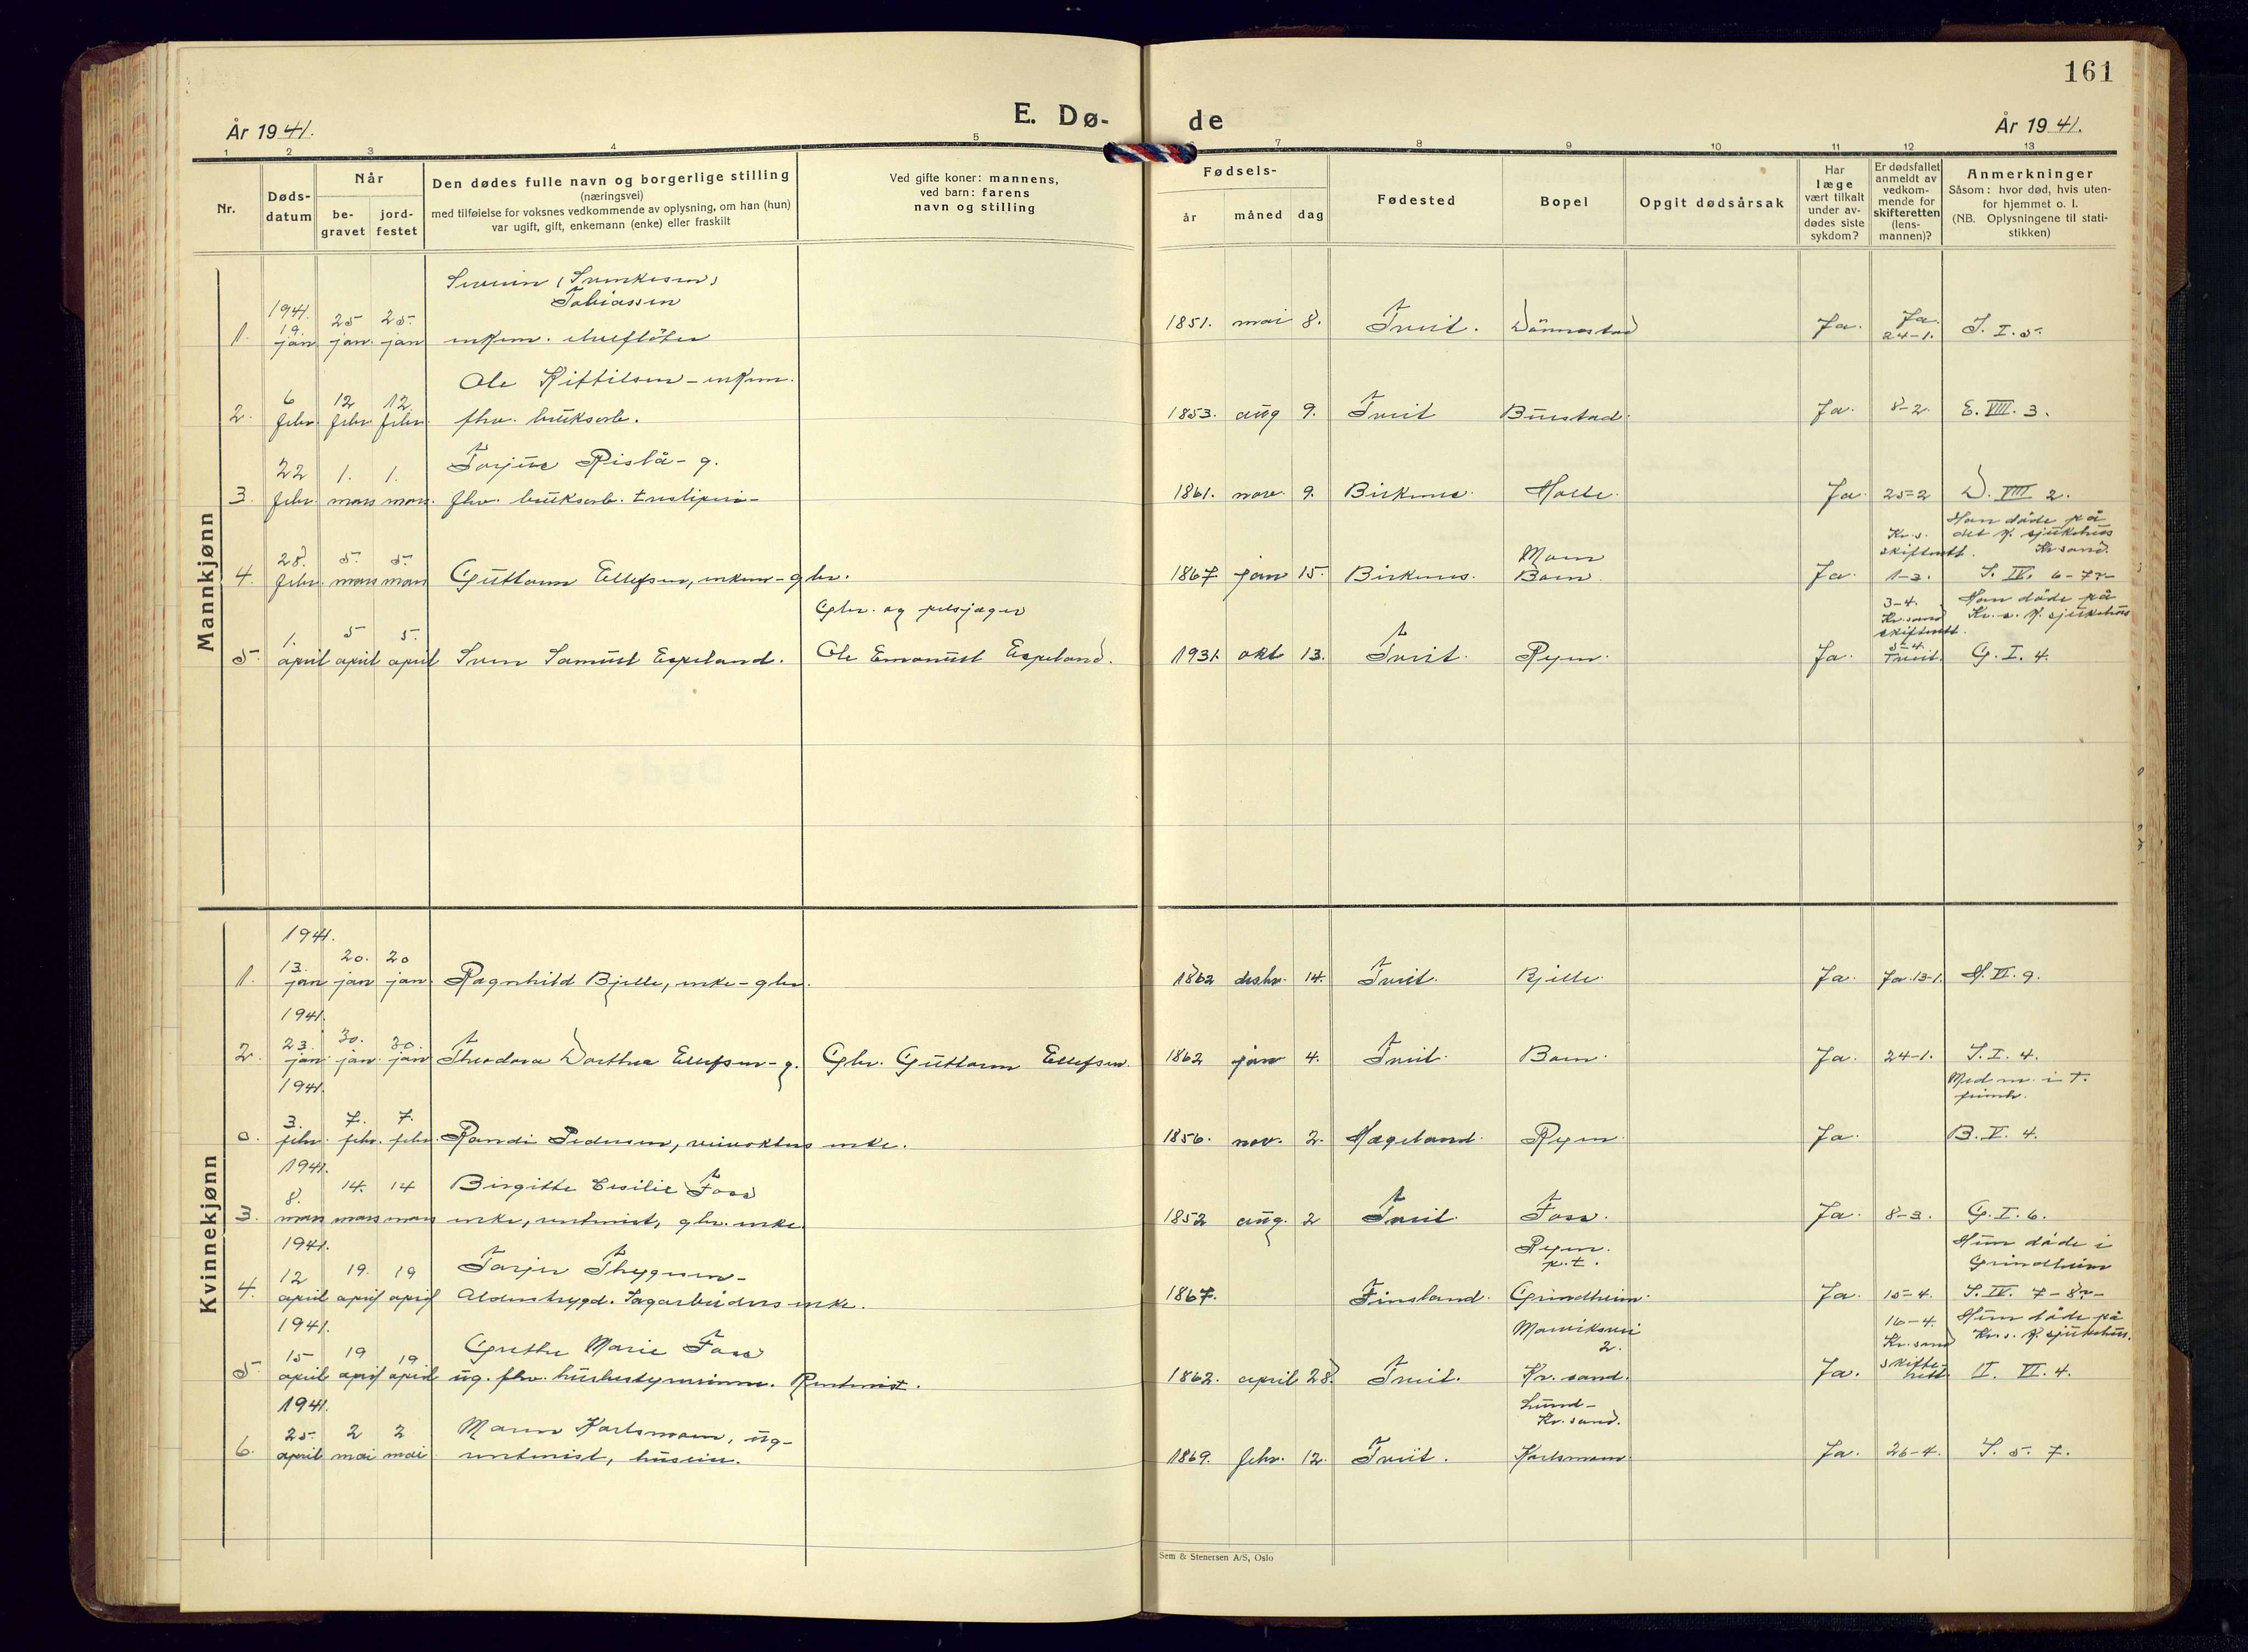 161
E. Dø-
de
År 1941.
År 1941.
1 2 3 4 5 7 8 9 10 11 12 13
Nr.
Døds-
datum
Når
be-
gravet
jord-
festet
Den dødes fulle navn og borgerlige stilling
(næringsvei)
med tilføielse for voksnes vedkommende av oplysning, om han (hun)
var ugift, gift, enkemann (enke) eller fraskilt
Ved gifte koner: mannens,
ved barn: farens
navn og stilling
Fødsels-
år måned dag
Fødested
Bopel
Opgit dødsårsak
Har
læge
vært tilkalt
under av-
dødes siste
sykdom?
Er dødsfallet
anmeldt av
vedkom-
mende for
skifteretten
(lens-
mannen)?
Anmerkninger
Såsom: hvor død, hvis uten-
for hjemmet o. l.
(NB. Oplysningene til stati-
stikken)
Mannkjønn
Tobiassen
1941.
1. 19. jan 25 jan. 25. jan enkem. elvefløter 1851. mai 8. Tveit. Drønnestad Ja. Ja. 24-1. S. I. 5.
Ole Kittilsen - enkem.
2. 6 febr. 12 febr. 12 febr. fhv. bruksarb. 1853. aug 9. Tveit Buestad. Ja. 8-2. E. VIII. 3.
Torjus Rislå - g.
3. 22 febr. 1. mars 1. mars. fhv. bruksarb. 1861. nov. 9. Birkenes. Ja. 25-2 D. VIII 2.
Han døde på
det k. sjukehus
Kr. sand.
Kr. s.
skifterett.
Moen
4. 28. febr. 5 mars 5 mars Guttorm Ellefsen, enkem - gbr. 1867 jan 15. Birkenes. Boen. Ja. 1-3. S. IV. 6-7
Han døde på
Kr. s. k. sjukehus
3-4.
Kr. sand
skifterett.
Gbr. og pelsjæger
5. 1. april 5 april 5. april Sven Samuel Espeland. Ole Emanuel Espeland. 1931. okt 13. Tveit. Ryen. Ja. 5-4 Tveit. G. I. 4.
Kvinnekjønn
1941.
1. 13. jan 20. jan 20 jan. Ragnhild Bjelle, enke - gbr. 1862 desbr. 14. Tveit. Bjelle. Ja. Ja. 13-1. H. VI. 9.
1941.
2. 23. jan. 30. jan. 30. jan Theodora Dorthea Ellefsen - g. Gbr. Guttorm Ellefsen. 1862 jan 4. Tveit. Boen. Ja. 24-1. S. I. 4.
1941.
0. 3. febr. 7. febr. 7. febr. Randi Pedersen, veivokters enke. 1856. nov. 2. Hægeland. Ryen. Ja. B. V. 4.
1941.
Birgitte Cesilie Foss
3. 8. mars 14. mars 14 mars enke, rentenist, gbr. enke 1852 aug. 2 Tveit. Foss. Ja. 8-3. G. I. 6.
1941.
Ryen.
p.t.
Hun døde i
Grindheim
Thygesen -
4. 12 april 19. april 19 april Alderstrygd. Sagarbeiders enke. 1867. Finsland. Grindheim. Ja. 15-4. S. IV. 7-8
1941.
Hun døde på
Kr. s. k. sjukehus.
16-4.
Kr. sand
skifte-
rett
2.
Grethe Marie Foss
5. 15 april 19 april 19 april ug. fhv. husbestyrerinne. Rentenist. 1862. april 28. Tveit. Kr. sand. Ja. II. VI. 4.
1941.
Lund -
Kr. sand.
Maren Karlsmoen, ug -
6. 25. april 2 mai 2 mai rentenist, husein. 1869. febr. 12. Tveit. Karlsmoen. Ja. 26-4. S. 5. 7.
Sem & Stenersen A/S, Oslo